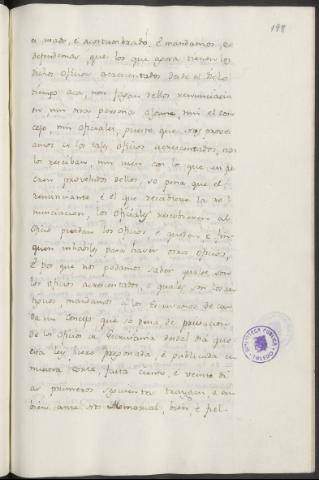 198
a usado, é acostumbrado. É mandamos, é
defendemos, que los que agora tienen los
dichos oficios acrecentados desde el dicho
tiempo acá, non fagan dellos renunciacion
en nin una persona alguna, nin el con-
cejo, nin oficiales, puesto que Nos provea-
mos de los tales oficios acrescentados, non
lo resciban, nin usen con lo que
fueren proveidos dellos, so pena que el
renunciante é el que rescibiere la re-
nunciacion, los oficiales rescibieren al
oficio pierdan los oficios, é queden é fin-
quen inhabiles para haver otros oficios,
É por que nos podamos saber quales son
los oficios acrecentados, é quales son los an-
tiguos, mandamos á los Escribanos de ca-
da un concejo que so pena de privacion
de los oficios de Escribania desde dia que
esta ley fuere pregonada, é publicada en
nuestra Corte, fasta ciento, é veinte di-
as primeros siguientes traygan, e en-
bien ante Nos Memorial, bien, é fiel-
BIBLIOTECA PUBLICA
TOLEDO